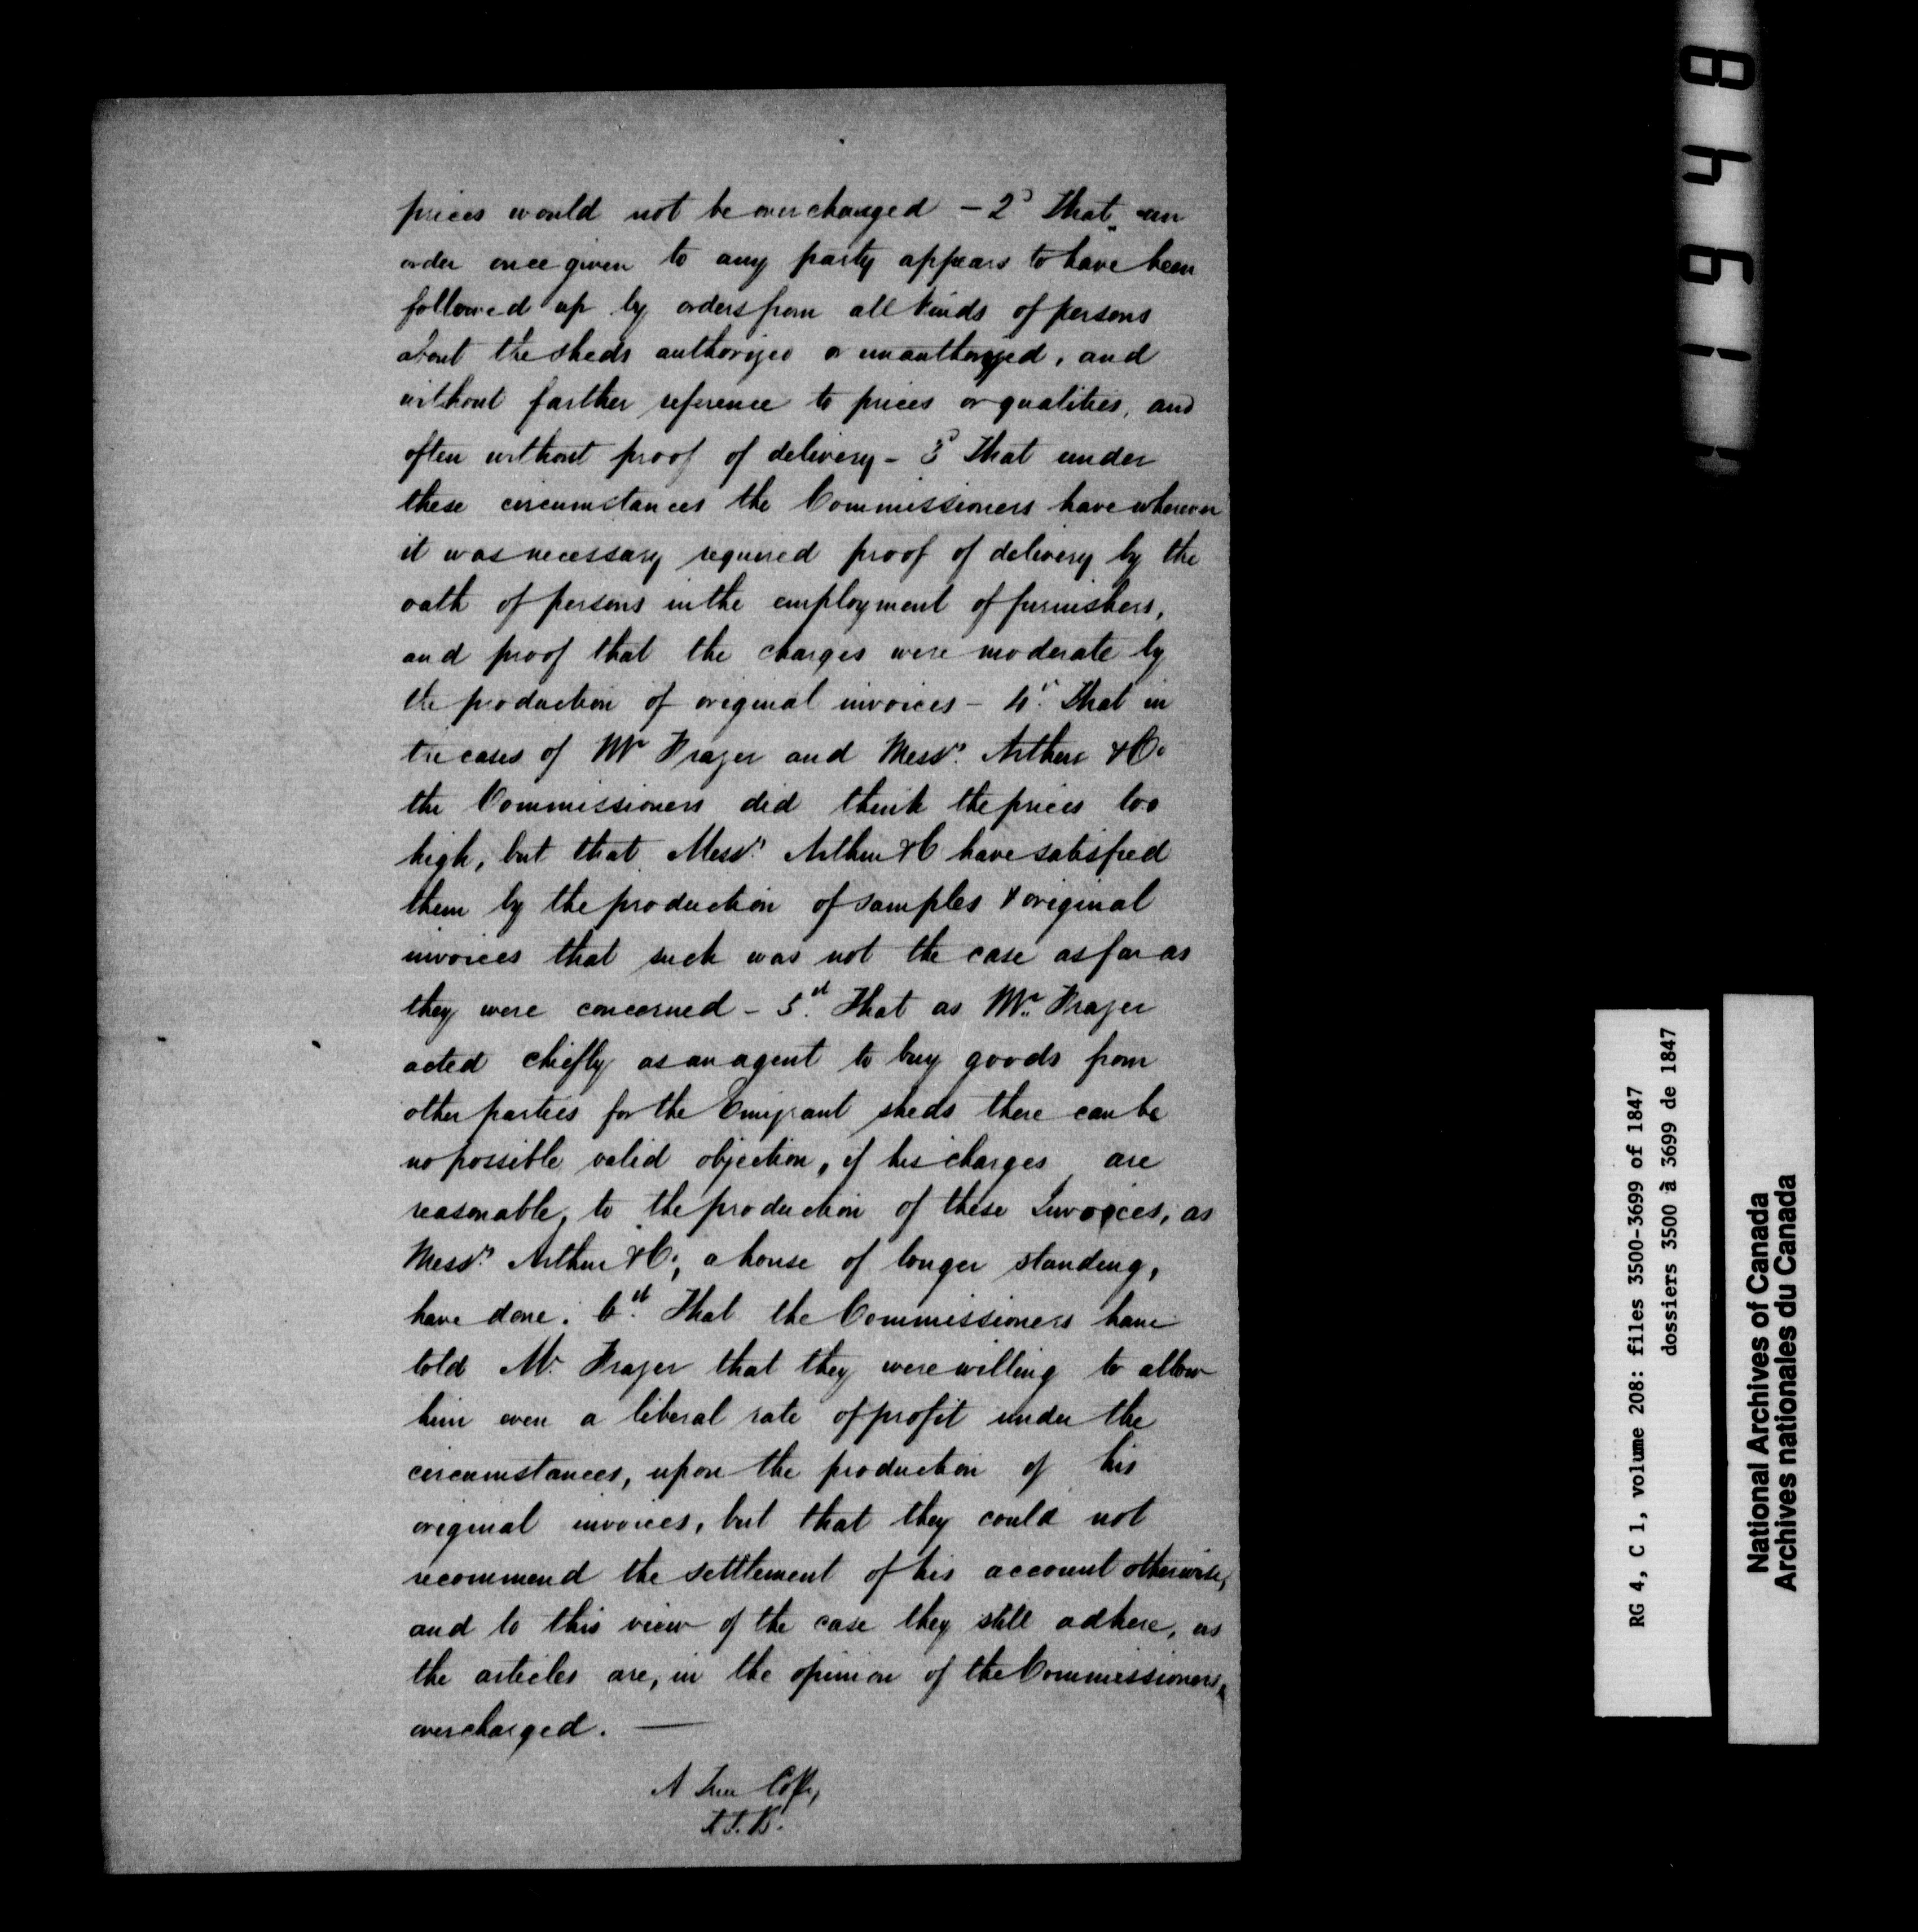 prices would not be overcharged – 2° That an
order once given to any party appears to have been
followed up by orders from all kinds of persons
about the sheds authorized or unauthorized, and
without farther reference to prices or qualities, and
often without proof of delivery – 3° That under
these circumstances the Commissioners have wherever
it was necessary required proof of delivery by the
oath of persons in the employment of furnishers,
and proof that the charges were moderate by
the production of original invoices – 4° That in
the cases of Mr Frazer and Messrs. Arthur & Co
the Commissioners did think the prices too
high, but that Messrs. Arthur & C have satisfied
them by the production of samples & original
invoices that such was not the case as far as
they were concerned – 5th. That as Mr. Frazer
acted chiefly as an agent to buy goods from
other parties for the Emigrant sheds there can be
no possible valid objection, if his charges are
reasonable, to the production of these Invoices, as
Messrs. Arthur & Co, a house of longer standing,
have done. 6th. That the Commissioners have
told Mr. Frazer that they were willing to allow
him even a liberal rate of profit under the
circumstances, upon the production of his
original invoices, but that they could not
recommend the settlement of his account otherwise,
and to this view of the case they still adhere, as
the articles are, in the opinion of the Commissioners,
overcharged. —
A True Copy,
1 6 9 4 8
RG 4, C 1, volume 208: files 3500-3699 of 1847
dossiers 3500 à 3699 de 1847
National Archives of Canada
Archives nationales du Canada